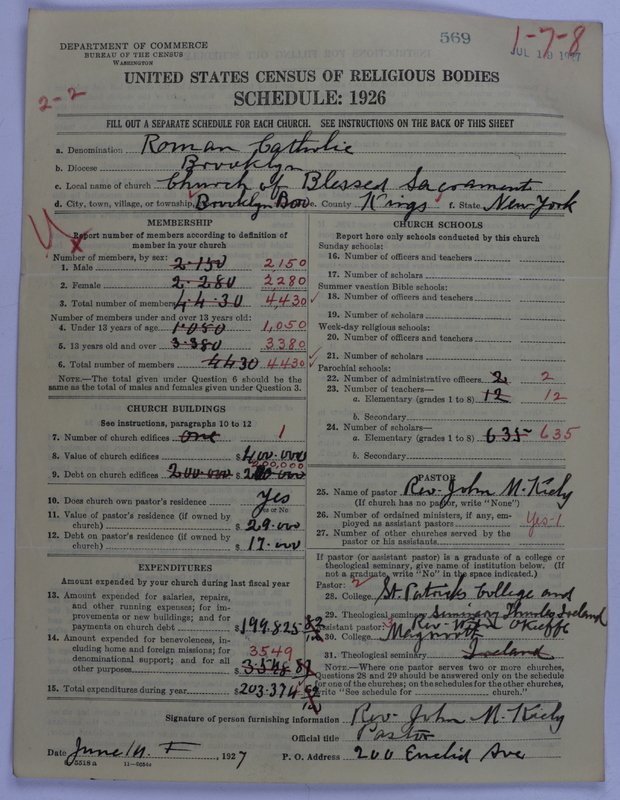 569
1-7-8
DEPARTMENT OF COMMERCE
BUREAU OF THE CENSUS
WASHINGTON
UNITED STATES CENSUS OF RELIGIOUS BODIES
2-2
SCHEDULE: 1926
FILL OUT A SEPARATE SCHEDULE FOR EACH CHURCH. SEE INSTRUCTIONS ON THE BACK OF THIS SHEET
a. Denomination Roman Catholic
b. Diocese Brooklyn
c. Local name of church Church of Blessed Sacrament
d. City, town, village, or township Brooklyn Boro e. County Kings f. State New York
MEMBERSHIP
Report number of members according to definition of
member in your church
Number of members, by sex:
1. Male 2.150 2150
2. Female 2.280 2280
3. Total number of members 44.30 4,430
Number of members under and over 13 years old:
4. Under 13 years of age 1.050 1,050
5. 13 years old and over 3.380 3380
6. Total number of members 4430 4430
NOTE.—The total given under Question 6 should be the
same as the total of males and females given under Question 3.
CHURCH BUILDINGS
See instructions, paragraphs 10 to 12
7. Number of church edifices one 1
8. Value of church edifices $400.000
200,000
9. Debt on church edifices 200.000 $
10. Does church own pastor's residence yes
Yes or No
11. Value of pastor's residence (if owned by
church) $29.000
12. Debt on pastor's residence (if owned by
church) $17.000
EXPENDITURES
Amount expended by your church during last fiscal year
13. Amount expended for salaries, repairs,
and other running expenses; for im-
provements or new buildings; and for
payments on church debt $199.825 83/100
14. Amount expended for benevolences, in-
cluding home and foreign missions; for 3549
denominational support; and for all
other purposes $3.548
15. Total expenditures during year $203.374
CHURCH SCHOOLS
Report here only schools conducted by this church
Sunday schools:
16. Number of officers and teachers
17. Number of scholars
Summer vacation Bible schools:
18. Number of officers and teachers
19. Number of scholars
Week-day religious schools:
20. Number of officers and teachers
21. Number of scholars
Parochial schools:
22. Number of administrative officers 2 2
23. Number of teachers—
a. Elementary (grades 1 to 8) 12 12
b. Secondary
24. Number of scholars—
a. Elementary (grades 1 to 8) 635 635
b. Secondary
PASTOR
25. Name of pastor Rev. John M. Kiely
(If church has no pastor, write "None")
26. Number of ordained ministers, if any, em-
ployed as assistant pastors Yes-1
27. Number of other churches served by the
pastor or his assistants
If pastor (or assistant pastor) is a graduate of a college or
theological seminary, give name of institution below. (If
not a graduate, write "No" in the space indicated.)
Pastor:
28. College St. Patricks College and
29. Theological seminary Seminary Thurles Ireland
Assistant pastor: Rev. O'Keeffe
30. College Maynooth
31. Theological seminary Ireland
NOTE.—Where one pastor serves two or more churches,
Questions 28 and 29 should be answered only on the schedule
for one of the churches; on the schedules for the other churches,
write "See schedule for church."
Signature of person furnishing information Rev. John M. Kiely
Official title Pastor
Date June 1927 P. O. Address 200 Euclid Ave